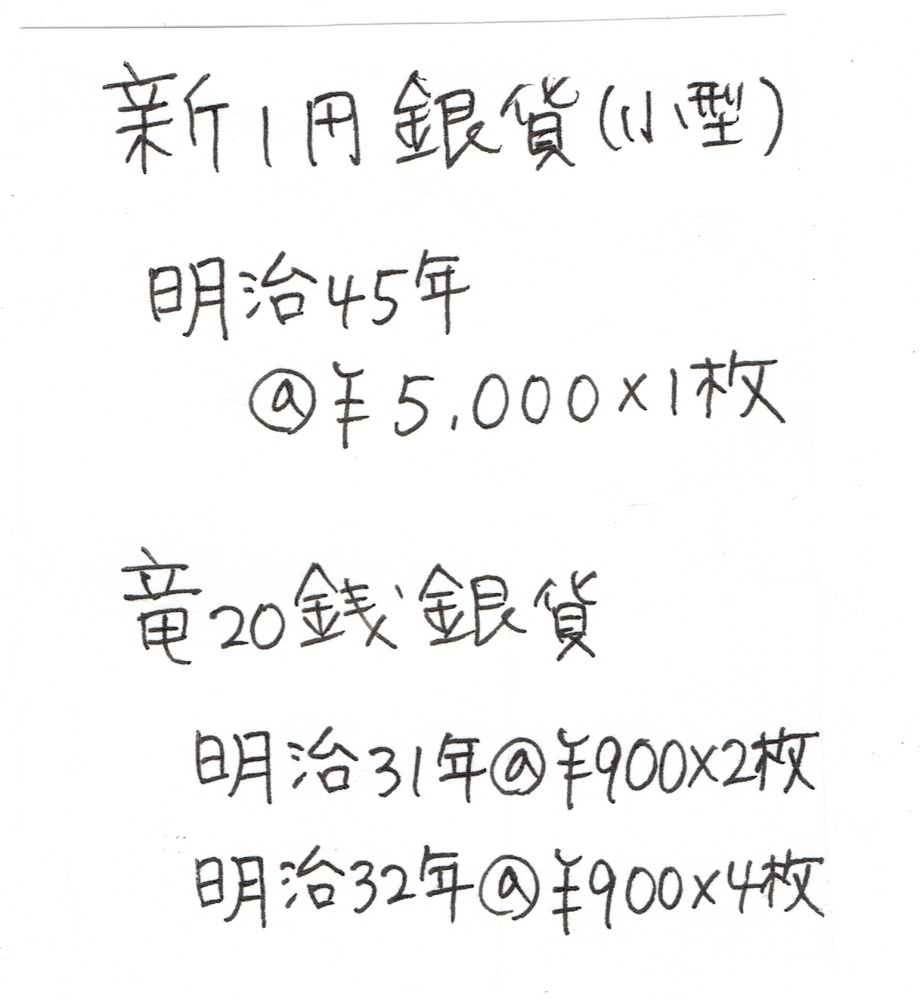 新1円銀貨(小型)
明治45年
@¥5,000×1枚
竜20銭銀貨
明治31年@¥900×2枚
明治32年@¥900×4枚